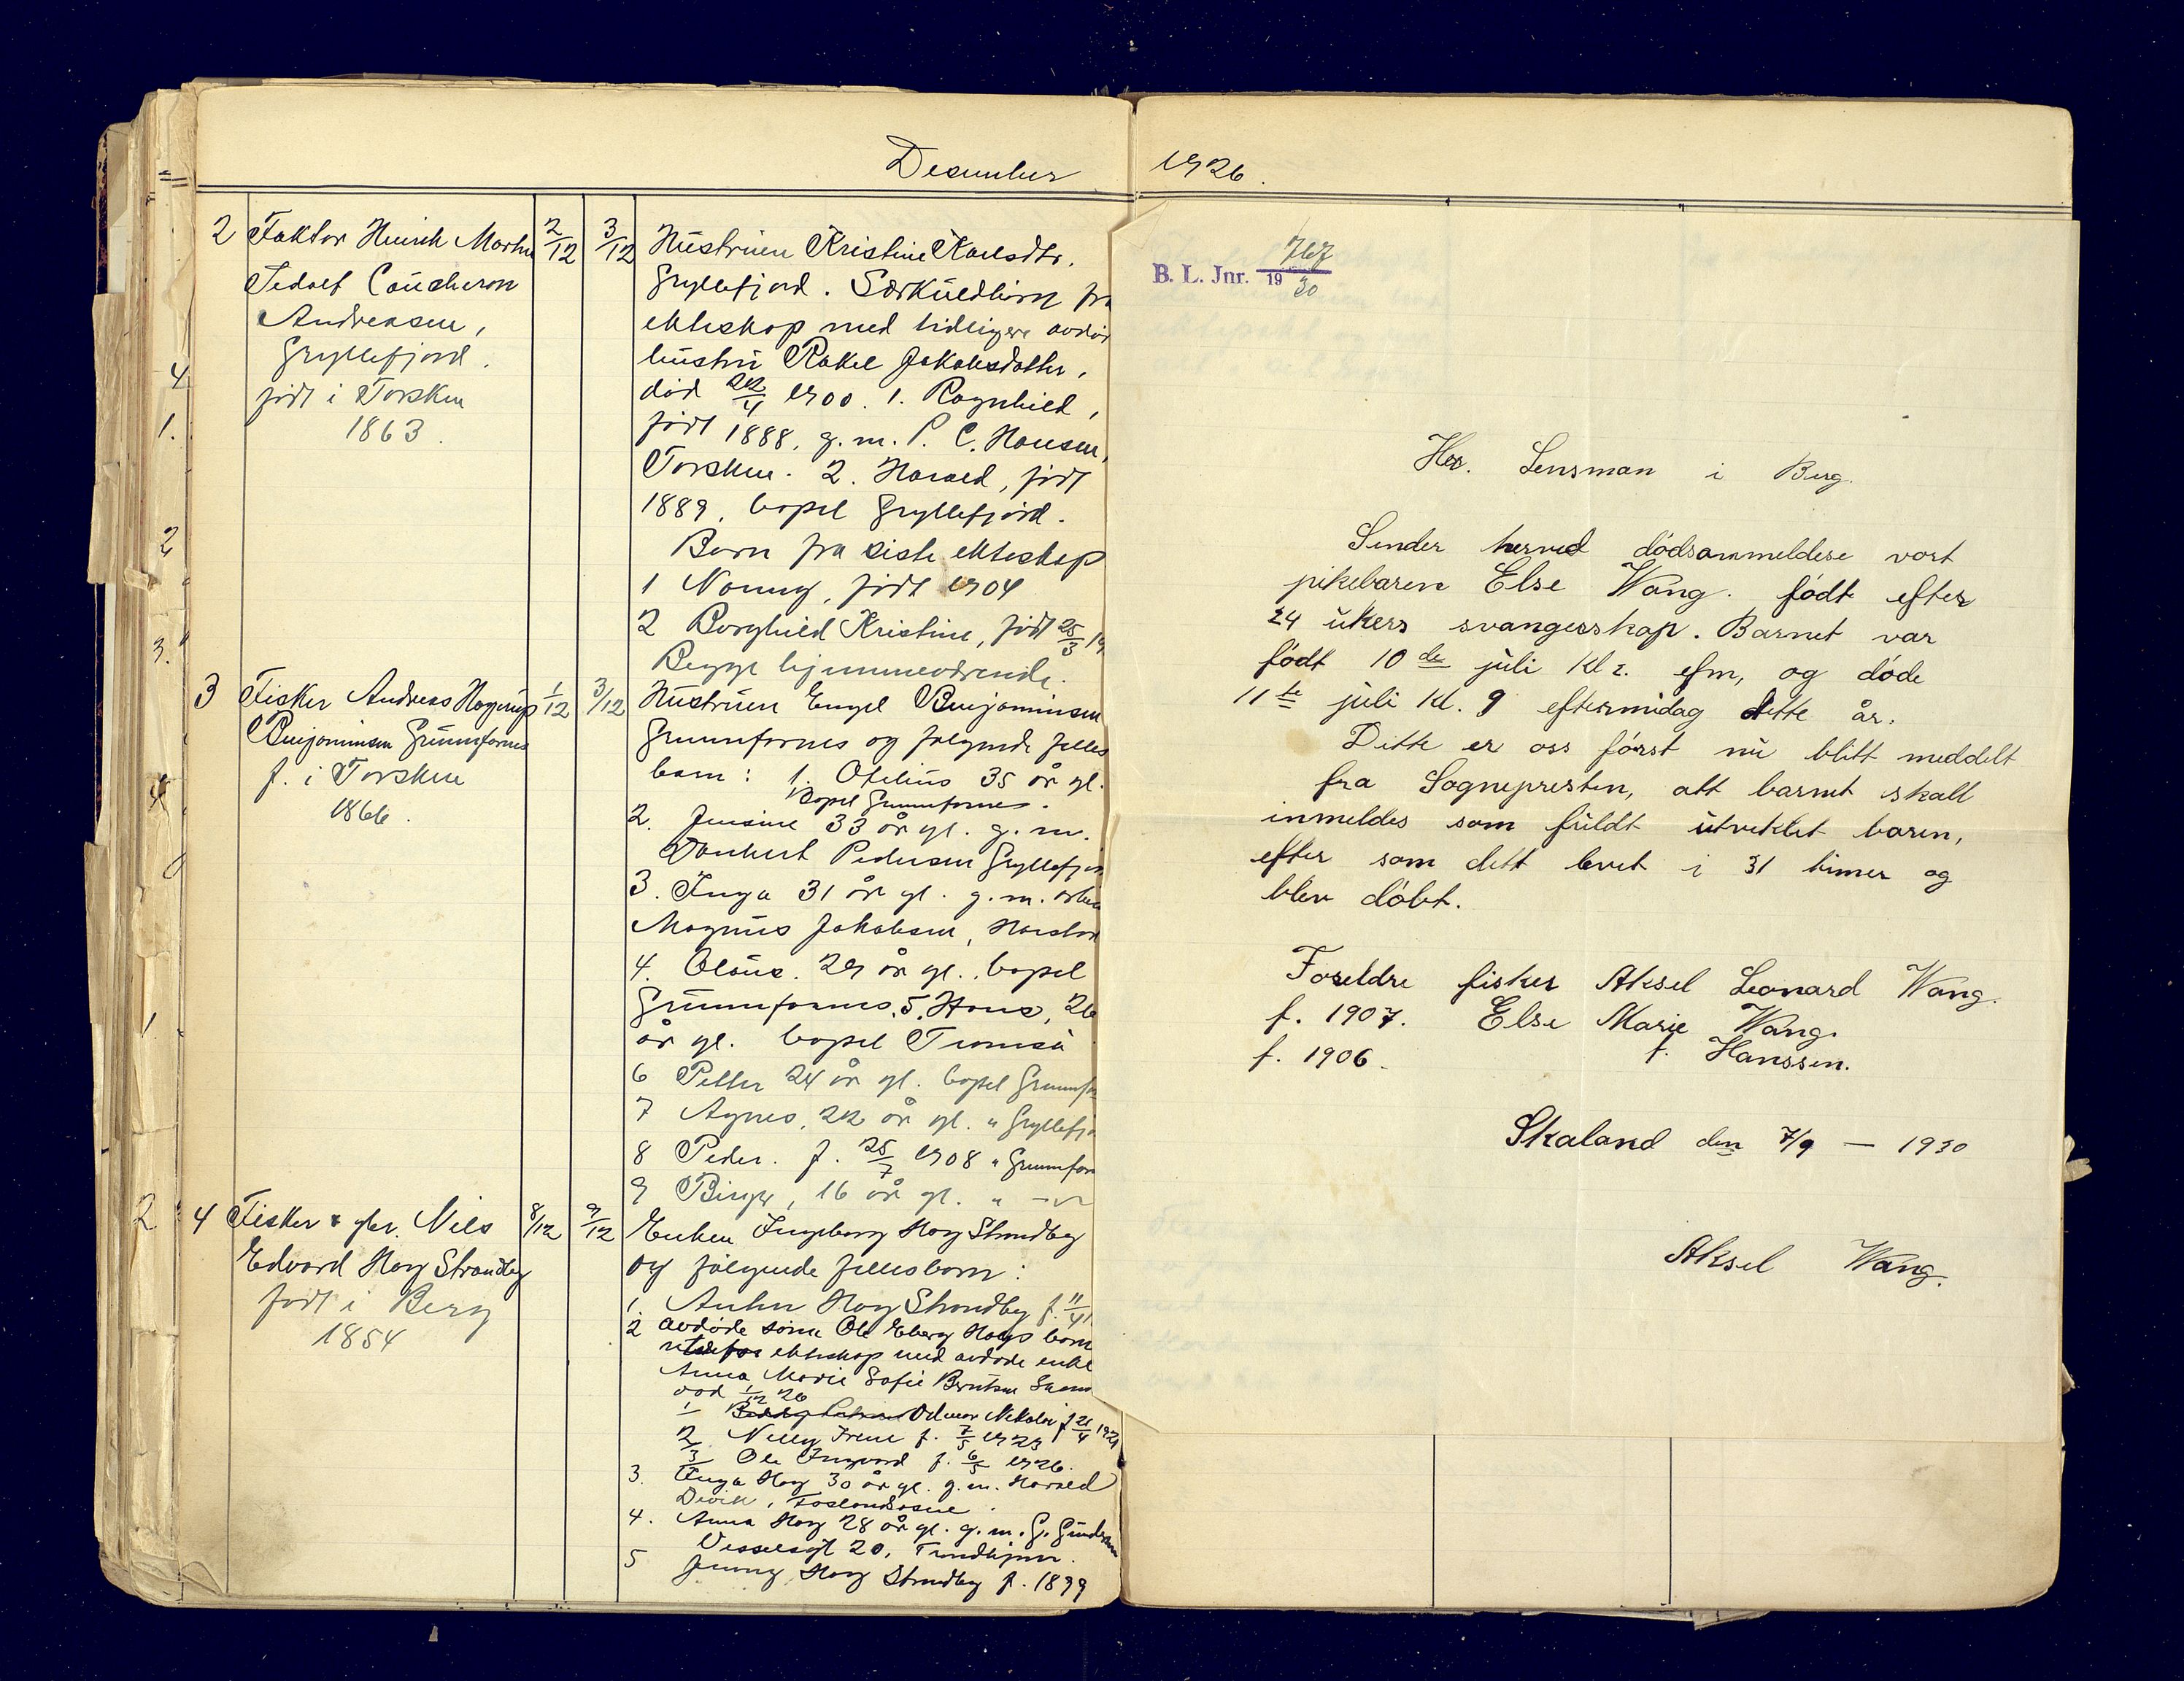 Desember 1926.
2 Faktor Hinrik Martin 2/12 3/12 Hustruen Kristine Karlsdtr.
Tedolf Coucheron Gryllefjord. Særkuldbørn fra
Andreasen, ekteskap med tidligere avdød
Gryllefjord. hustru Rakel Jakobsdatter,
født i Torsken død 22/4 1900. 1. Ragnhild,
1863. født 1888, g. m. P. C. Hansen,
Torsken. 2. Harald, født
1889, bopel Gryllefjord.
Barn fra siste ekteskap
1 Nanny, født 1904
2 Borghild Kristine, født 25/3 19
Begge hjemmeværende.
3 Fisker Andreas Hagerup 1/12 3/12 Hustruen Engel Benjaminsen
Benjaminsen Grunnfarnes Grunnfarnes og følgende felles
f. i Torsken barn: 1. Otelius 35 år gl.
1866. Bopel Grunnfarnes.
2. Jensine 33 år gl. g. m.
Pedersen Gryllefjor
3. Inga 31 år gl. g. m.
Magnus Jakobsen, Harstad
4. Olaus. 29 år gl. bopel
Grunnfarnes. 5. Hans, 26
år gl. bopel Tromsø
6 Petter 24 år gl. bopel Grunnfar
7 Agnes, 22 år gl. " Gryllefjo
8 Peder. f. 25/7 1908 " Grunnfar
9 Birger, 16 år gl. " — " —
4 Fisker & gbr. Nils 8/12 9/12 Enken Ingeborg Hog Strandby
Edvard Hog Strandby og følgende fellesbarn:
født i Berg 1. Anton Hog Strandby f. 11/4
1854 2 avdøde sønn Ole Eberg Hogs barn
ekteskap med avdøde enke
Anna Marie Sofie Berntsen
død 1/12 26
1 Odmar Nikolai f 21/4 1921
2 Nelly Irene f. 7/5 1923
3 Ole Ingvard f. 6/5 1926.
3. Inga Hog 30 år gl. g. m. Harald
Devik, Foslandsosen.
4. Anna Hog 28 år gl. g. m. G. Gundersen
Vesselsgt 20, Trondhjem.
5 Jenny Hog Strandby f. 1899
B. L. Jnr. 767/1930
Her. Lensman i Berg.
Sender herved dødsanmeldese vort
pikebaren Else Wang. født efter
24 ukers svangerskap. Barnet var
født 10de juli kl 2. efm, og døde
11te juli kl. 9 eftermidag dette år.
Dette er oss først nu blitt meddelt
fra Sognepresten, att barnet skall
inmeldes som fuldt utveklet baren,
efter som dett levet i 31 timer og
blev døbt.
Foreldre fisker Aksel Leonard Wang.
f. 1907. Else Marie Wang.
f. 1906. f. Hanssen.
Skaland den 7/9 — 1930
Aksel Wang.